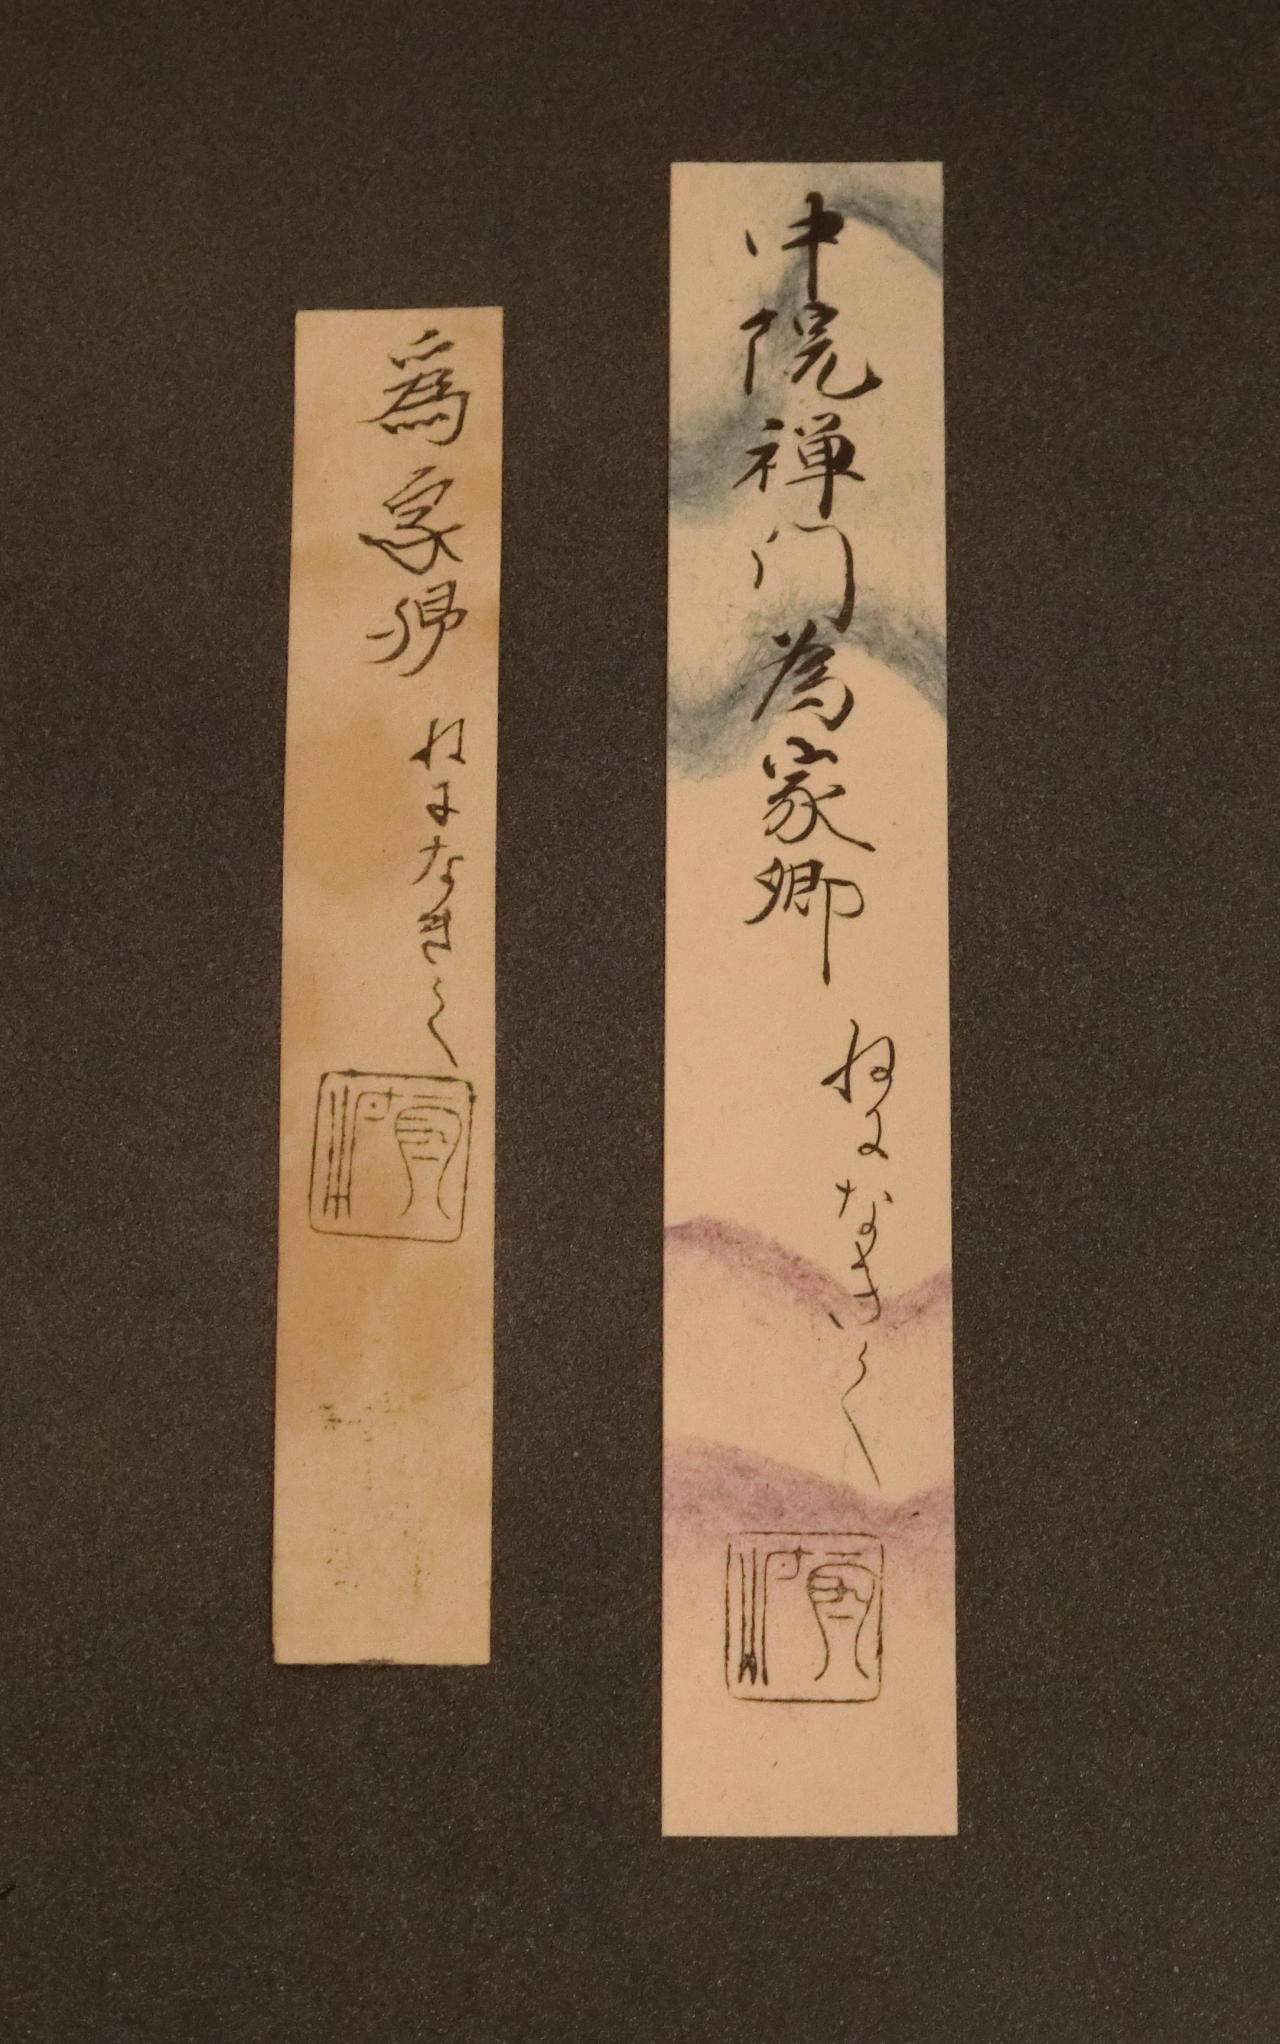 中院禅门為家卿 ねになきく
為家卿 ねになきく